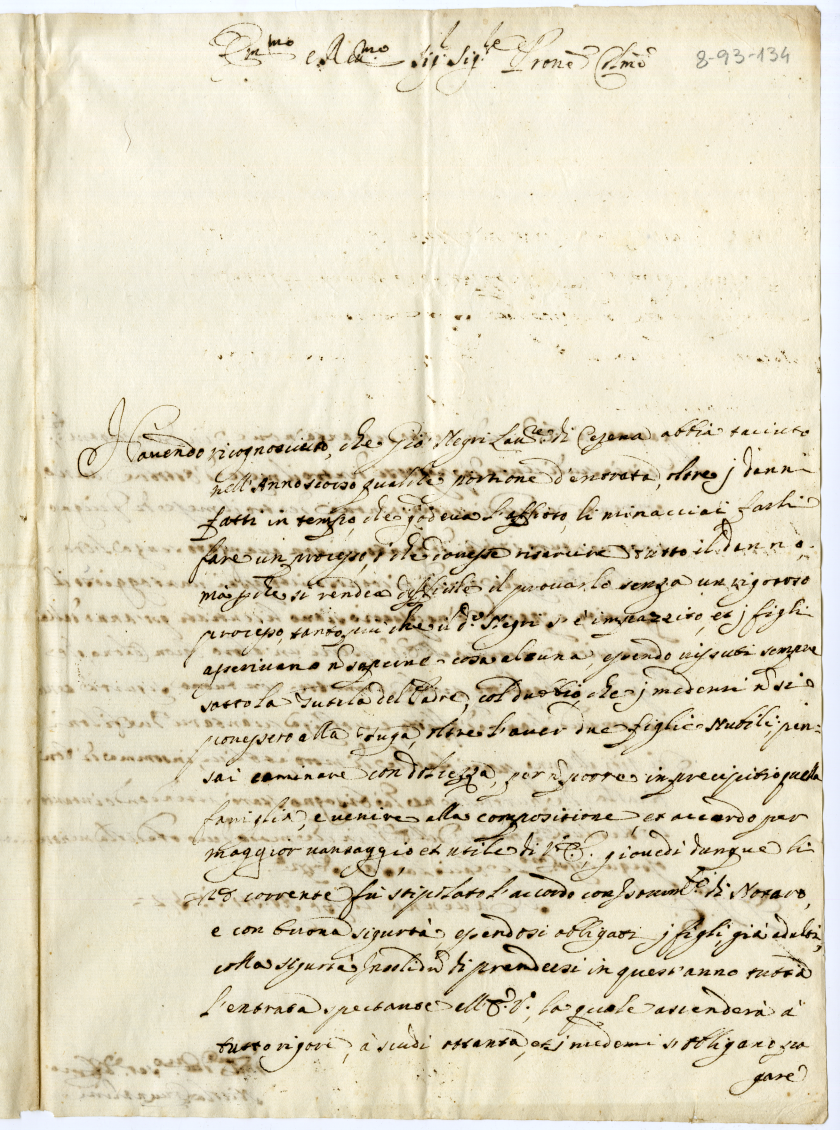 Em.mo e R.mo Sig.r Sig.re Prone Colmo
8-93-134
Havendo ricognosciuto, che Gio: Negri Lau.re di Cesena abbia taciuto
nell'Anno scorso qualche portione d'entrata, oltre j danni
fatti in tempo, che godeva l'affitto, li minacciai farli
fare un processo, che dovesse risarcire tutto il danno,
mà p che si rendea difficile il provarlo senza un rigoroso
processo, tanto più che il d.o Negri s'è impazzito, et j figli
asserivano ñ saperne cosa alcuna, essendo vissuti sempre
sotto la tutela del Padre, col dubbio, che j medemi ñ si
ponessero alla fuga, oltre l'aver due figlie Nubili, pen=
sai caminare con dolcezza, per ñ porre in precipitio quella
famiglia, e venire alla compositione, et accordo per
maggior vantaggio, et utile di V. E.; giovedì dunque li
corrente fù stipolato l'accordo con Istrum.to di Notaro,
e con buona sigurtà, essendosi obligati j figli, già adulti,
colla sigurtà Insolidũ di prendersi in quest'anno tutta
l'entrata spectante all' la quale ascenderà à
tutto rigore, à scudi ottanta, et j medemi s'obligano pa
gare